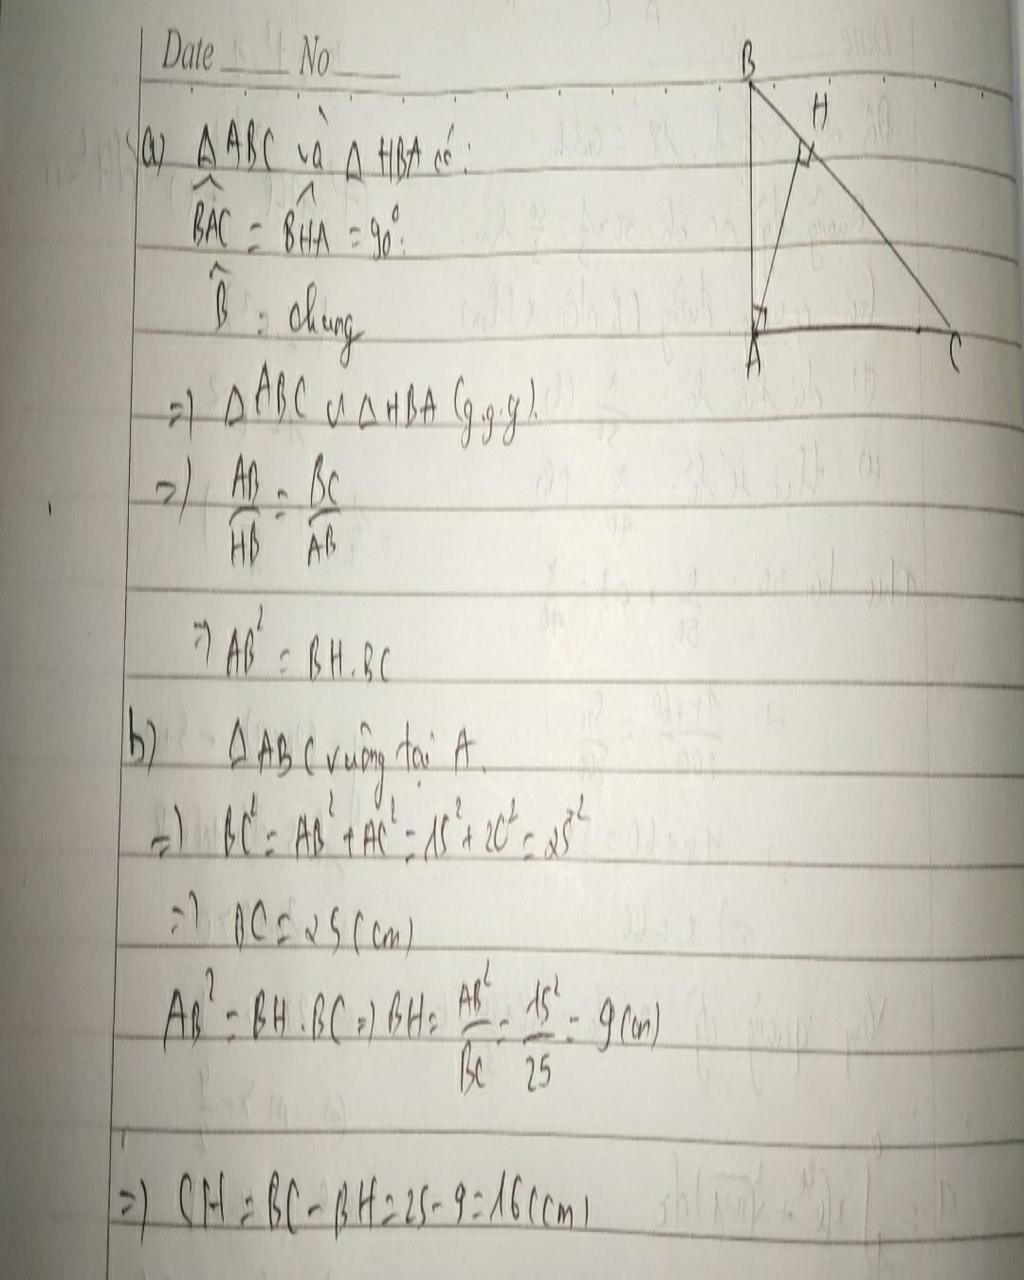 Date ___ No ___
B
H
A
C
a) Δ ABC và Δ HBA có:
BAC = BHA = 90°.
B̂ : chung
=) Δ ABC ∽ Δ HBA (g.g.g).
=) AB/HB = BC/AB
=) AB² = BH.BC
b) Δ ABC vuông tại A.
=) BC² = AB² + AC² = 15² + 20² = 25²
=) BC = 25 (cm)
AB² = BH.BC =) BH = AB²/BC = 15²/25 = 9 (cm)
=) CH = BC - BH = 25 - 9 = 16 (cm)